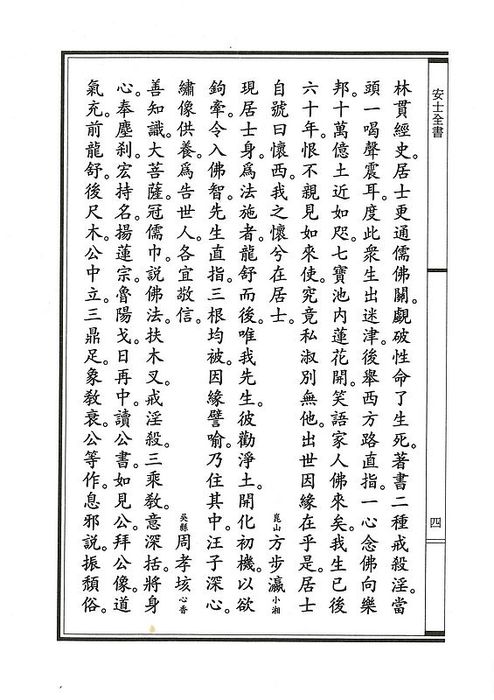 安士全書
四
林貫經史。居士更通儒佛關。覷破性命了生死。著書二種戒殺淫。當
頭一喝聲震耳。度此衆生出迷津。後舉西方路直指。一心念佛向樂
邦。十萬億土近如咫。七寶池內蓮花開。笑語家人佛來矣。我生已後
六十年。恨不親見如來使。究竟私淑別無他。出世因緣在乎是。居士
自號曰懷西。我之懷兮在居士。 崑山 方步瀛 小湘
現居士身。爲法施者。龍舒而後。唯我先生。彼勸淨土。開化初機。以欲
鉤牽。令入佛智。先生直指。三根均被。因緣譬喻。乃住其中。汪子深心。
繡像供養。爲告世人。各宜敬信。 吳縣 周孝垓 心香
善知識。大菩薩。冠儒巾。說佛法。扶木叉。戒淫殺。三乘敎。意深括。將身
心。奉塵剎。宏持名。揚蓮宗。魯陽戈。日再中。讀公書。如見公。拜公像。道
氣充。前龍舒。後尺木。公中立。三鼎足。象敎衰。公等作。息邪說。振頹俗。